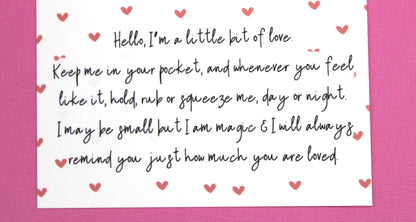 Hello, I'm a little bit of love.
Keep me in your pocket, and whenever you feel
like it, hold, rub or squeeze me, day or night.
I may be small but I am magic & I will always
remind you just how much you are loved.